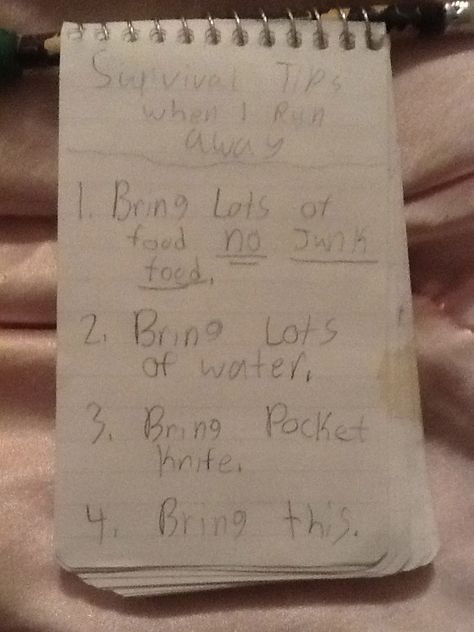 Survival Tips
when I Run
away
1. Bring Lots of
food no Junk
food.
2. Bring Lots
of water.
3. Bring Pocket
knife.
4. Bring this.